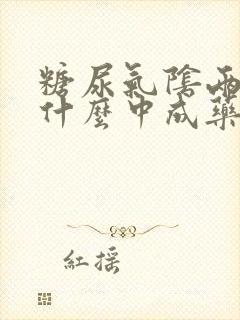 糖尿氣陰兩
什麼中成藥
紅搖